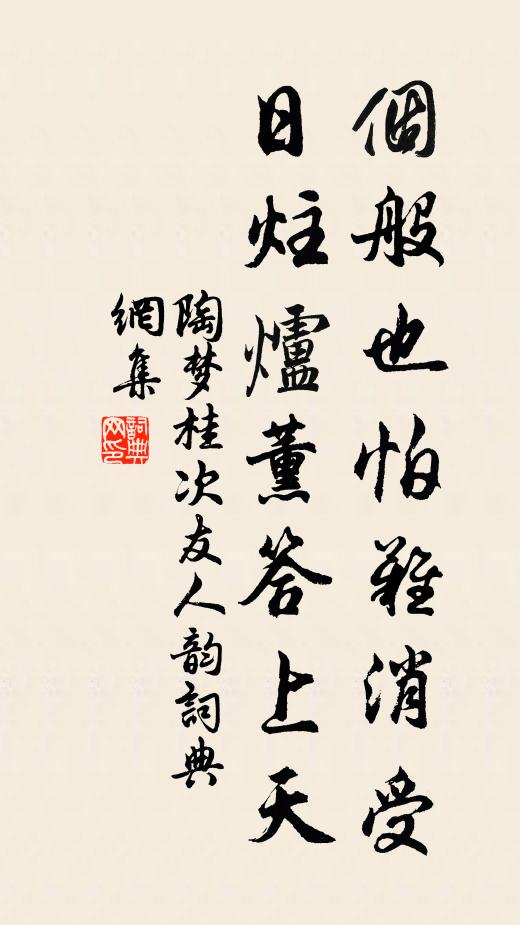 個般也怕難消受
日炷爐薰答上天
陶梦桂次友人韵詞典
網集
詞典网印